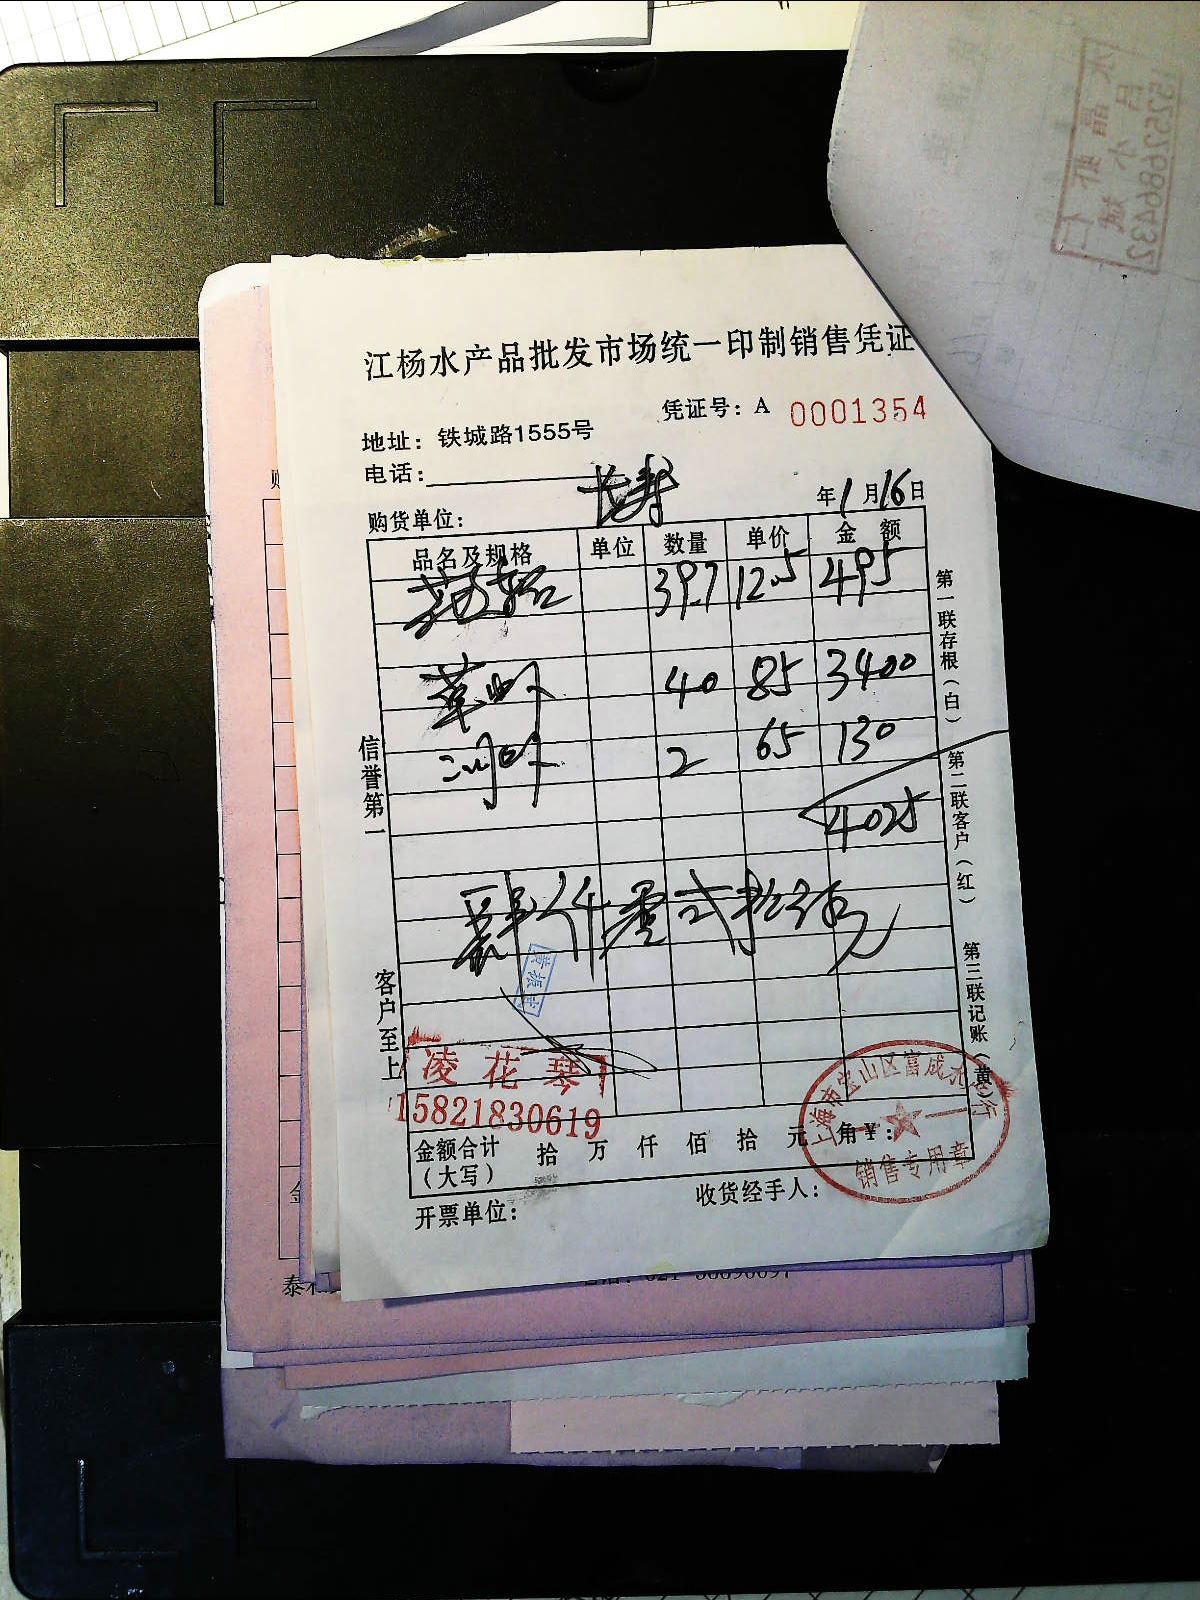 江杨水产品批发市场统一印制销售凭证
凭证号：A 0001354
地址：铁城路1555号
电话：
购货单位： 长寿 年1月16日
品名及规格 单位 数量 单价 金额
39.7 12.5 495
草虾 40 85 3400
河虾 2 65 130
4025
肆仟零弍拾伍元
第一联存根（白）
第二联客户（红）
第三联记账（黄）
信誉第一
客户至上
凌花琴
15821830619
金额合计（大写） 拾 万 仟 佰 拾 元 角 ¥：
开票单位： 收货经手人：
销售专用章
水晶虾仁
吕小斌
15252686432